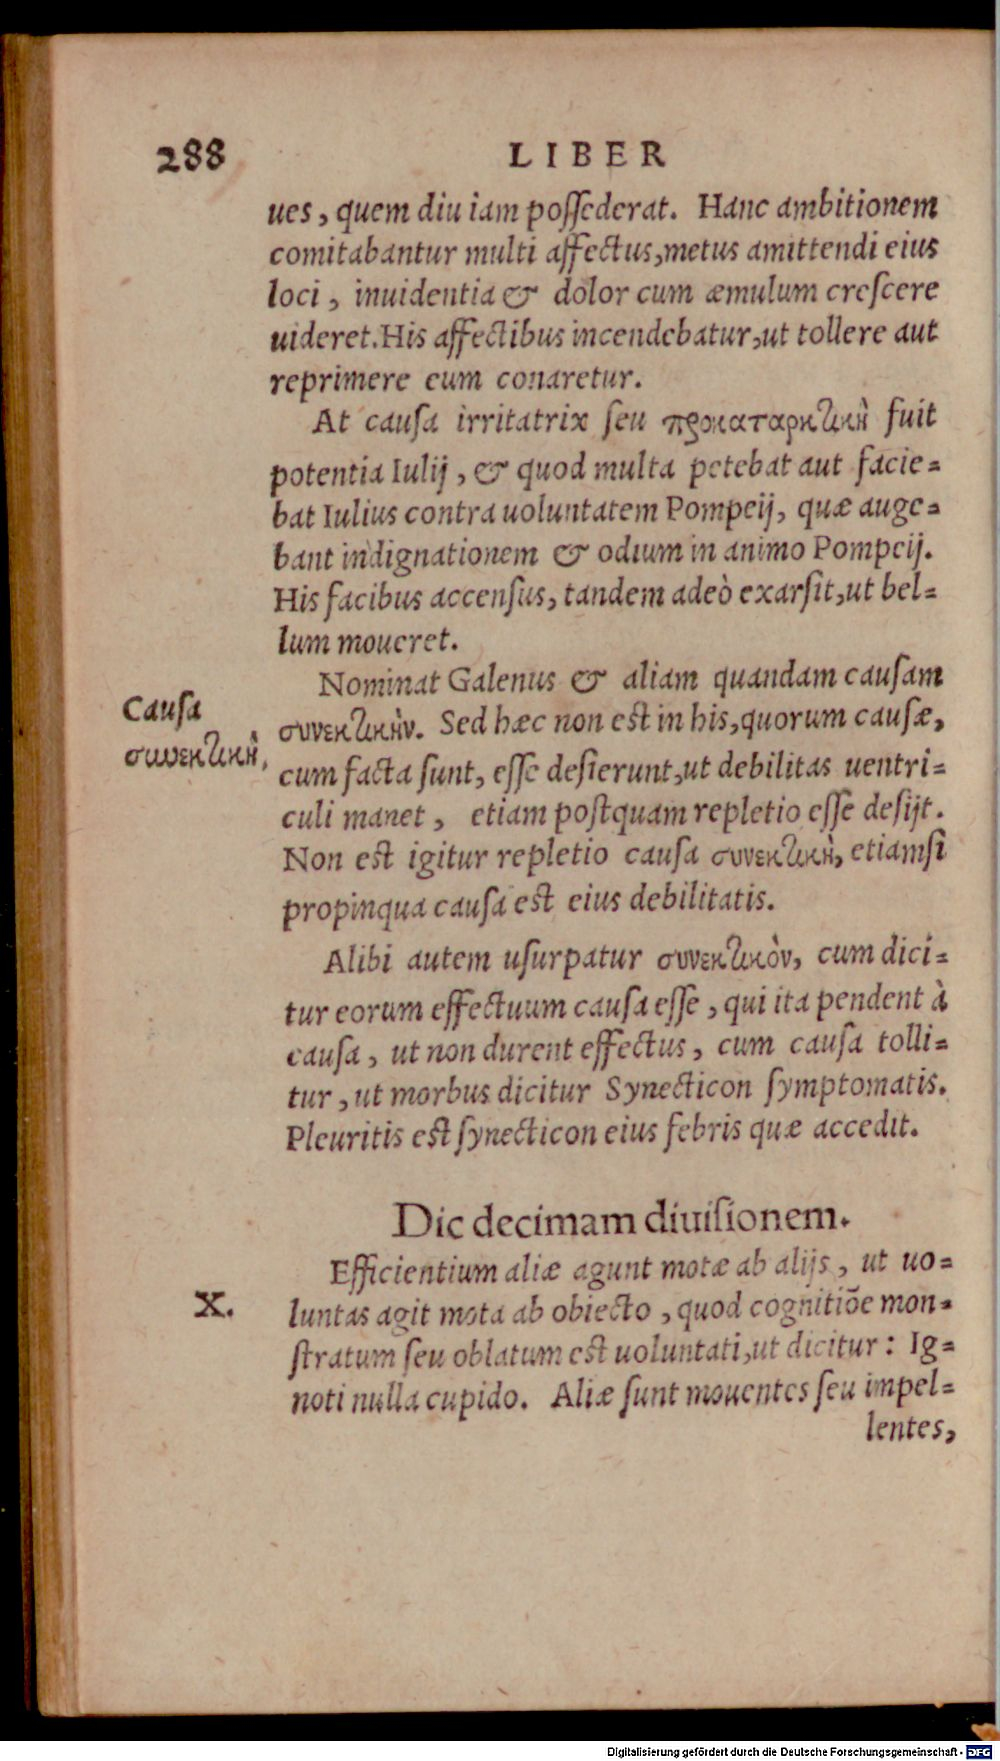 288 LIBER
ues, quem diu iam possederat. Hanc ambitionem
comitabantur multi affectus, metus amittendi eius
loci, inuidentia & dolor cum æmulum crescere
uideret. His affectibus incendebatur, ut tollere aut
reprimere eum conaretur.
At causa irritatrix seu προκαταρκτικὴ fuit
potentia Iulij, & quod multa petebat aut facie=
bat Iulius contra uoluntatem Pompeij, quæ auge=
bant indignationem & odium in animo Pompeij.
His facibus accensus, tandem adeò exarsit, ut bel=
lum moueret.
Nominat Galenus & aliam quandam causam
Causa
συνεκτικὴν. Sed hæc non est in his, quorum causæ,
συνεκτικὴ,
cum facta sunt, esse desierunt, ut debilitas uentri=
culi manet, etiam postquam repletio esse desijt.
Non est igitur repletio causa συνεκτικὴ, etiamsi
propinqua causa est eius debilitatis.
Alibi autem usurpatur συνεκτικὸν, cum dici=
tur eorum effectuum causa esse, qui ita pendent à
causa, ut non durent effectus, cum causa tolli=
tur, ut morbus dicitur Synecticon symptomatis.
Pleuritis est synecticon eius febris quæ accedit.
Dic decimam diuisionem.
Efficientium aliæ agunt motæ ab alijs, ut uo=
X.
luntas agit mota ab obiecto, quod cognitiōe mon=
stratum seu oblatum est uoluntati, ut dicitur: Ig=
noti nulla cupido. Aliæ sunt mouentes seu impel=
lentes,
Digitalisierung gefördert durch die Deutsche Forschungsgemeinschaft - DFG